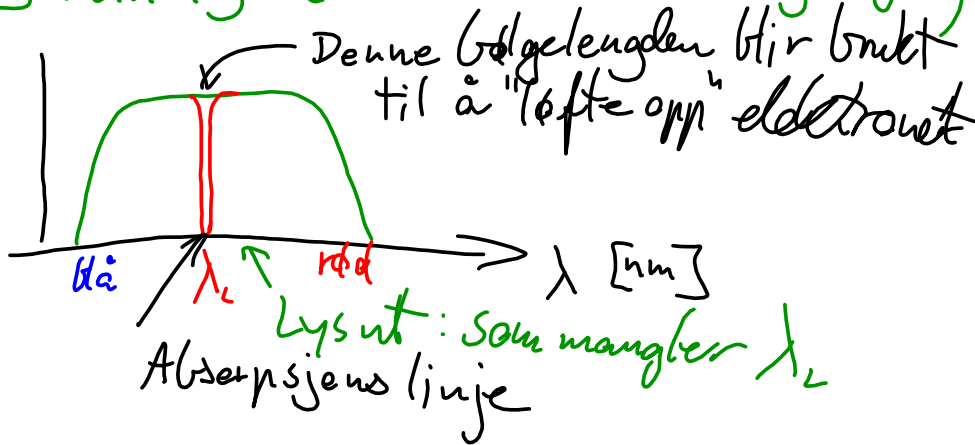 Denne bølgelengden blir brukt
til å "løfte opp" elektronet
blå
λL
rød
λ [nm]
Lys ut : som mangler λL
Absorpsjons linje